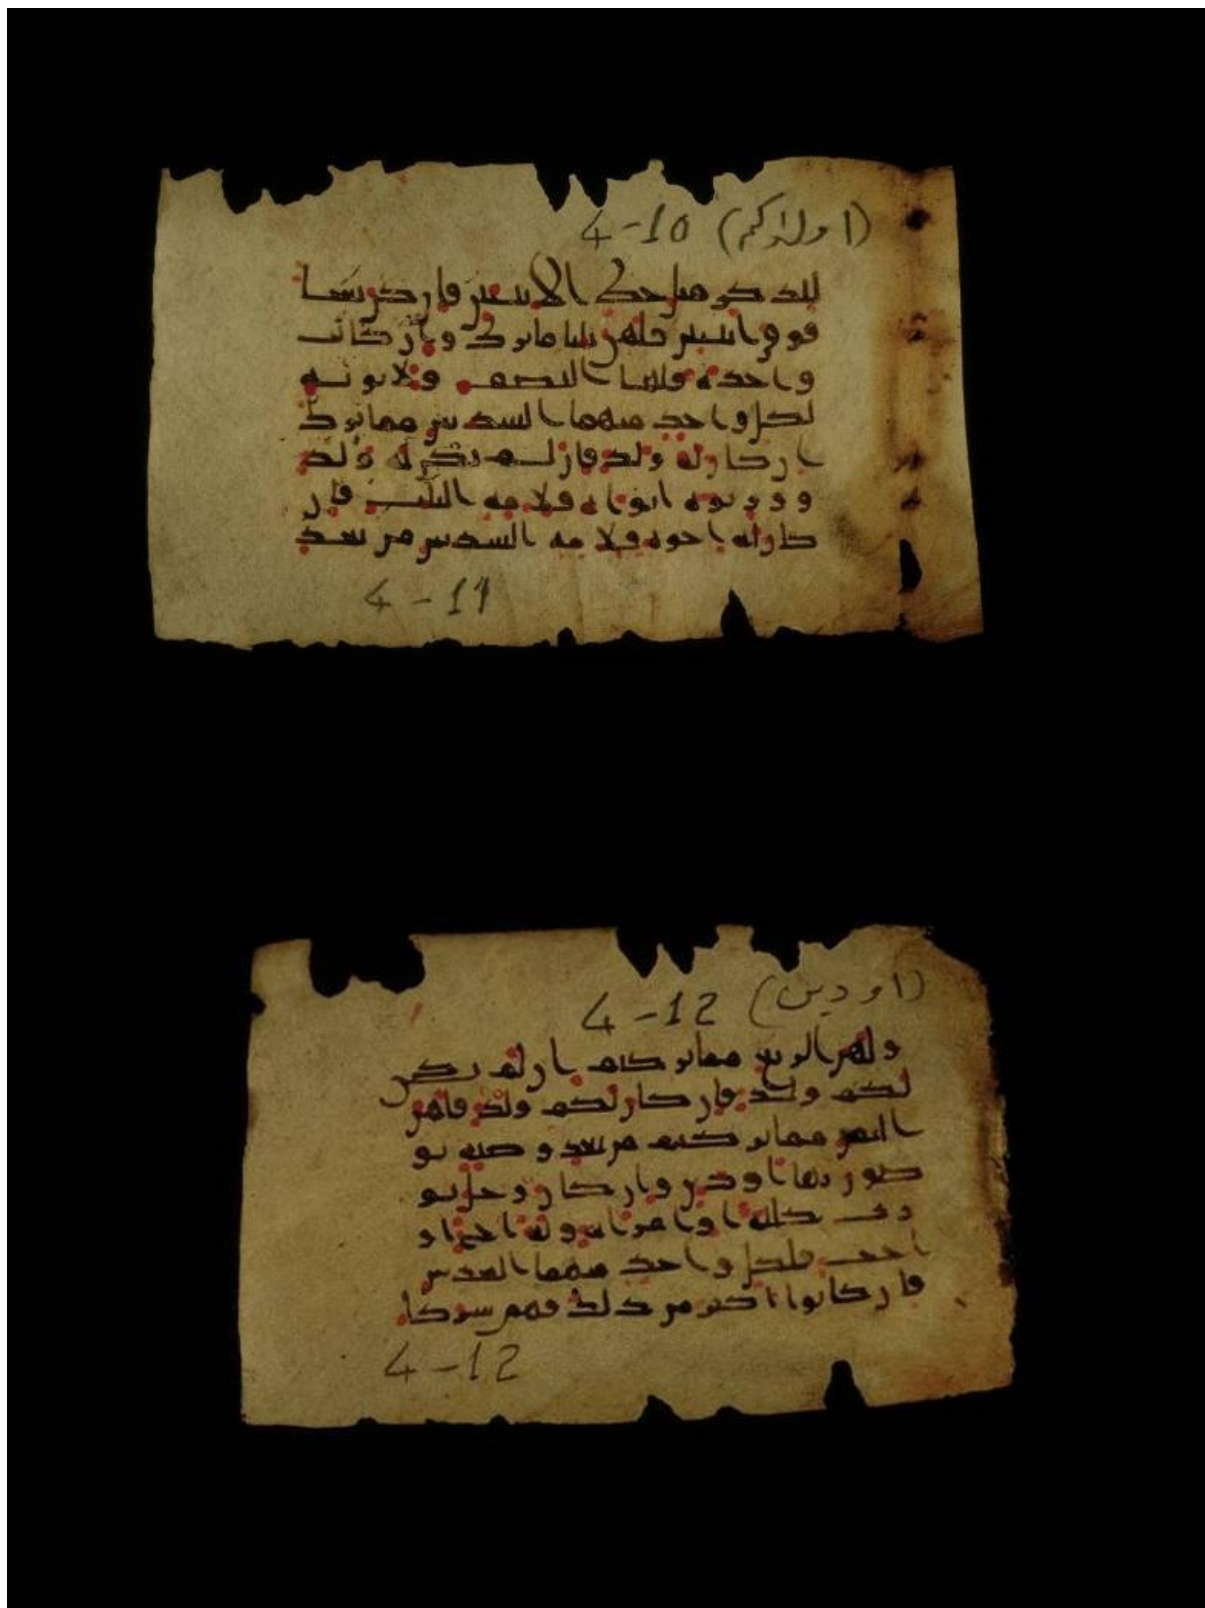 (اولادكم) 4-10
للذكر مثل حظ الانثيين فان كن نسا
فوق اثنتين فلهن ثلثا ما ترك وان كانت
واحدة فلها النصف ولابويه
لكل واحد منهما السدس مما ترك
ان كان له ولد فان لم يكن له ولد
وورثه ابواه فلامه الثلث فان
كان له اخوة فلامه السدس من بعد
4-11
(او دين) 4-12
ولهن الربع مما تركتم ان لم يكن
لكم ولد فان كان لكم ولد فلهن
الثمن مما تركتم من بعد وصية تو
صون بها او دين وان كان رجل يو
رث كللة او امراة وله اخ او
اخت فلكل واحد منهما السدس
فان كانوا اكثر من ذلك فهم شركا
4-12